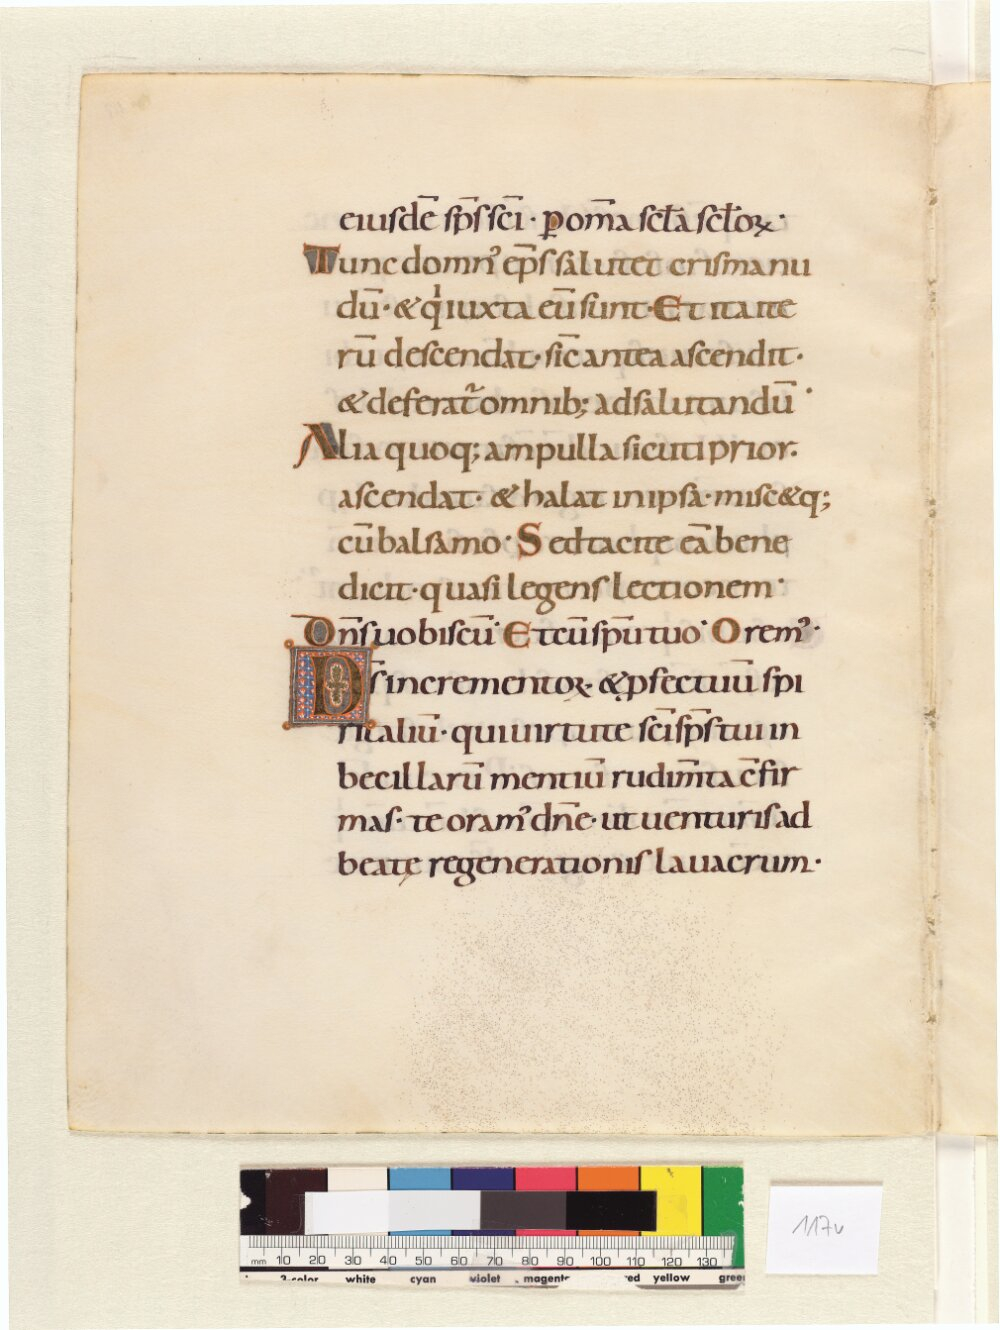 eiusdē sp̄s sc̄i · p om̄a scl̄a scl̄oꝝ ·
Tunc domn᾽ ep̄s salutet crismanu
dū · & qͥ iuxta eū sunt · Et ita ite
rū descendat · sic̄ antea ascendit ·
& deferat᷑ omnib; ad salutandū ·
Alia quoq; ampulla sicuti prior ·
ascendat · & halat in ipsa · misc&q;
cū balsamo · Sed tacite eā bene
dicit · quasi legens lectionem ·
Dn̄s uobiscū · Et cū sp̄u tuo · Orem᾽ ·
D̄s incrementoꝝ · & ꝓfectuū spi
ritaliū · qui uirtute sc̄i sp̄s tui in
becillarū mentiū rudim̄ta c̄fir
mas · te oram᾽ dn̄e · ut uenturis ad
beatę regenerationis lauacrum ·
mm 10 20 30 40 50 60 70 80 90 100 110 120 130
3-color white cyan violet magenta red yellow green
117v